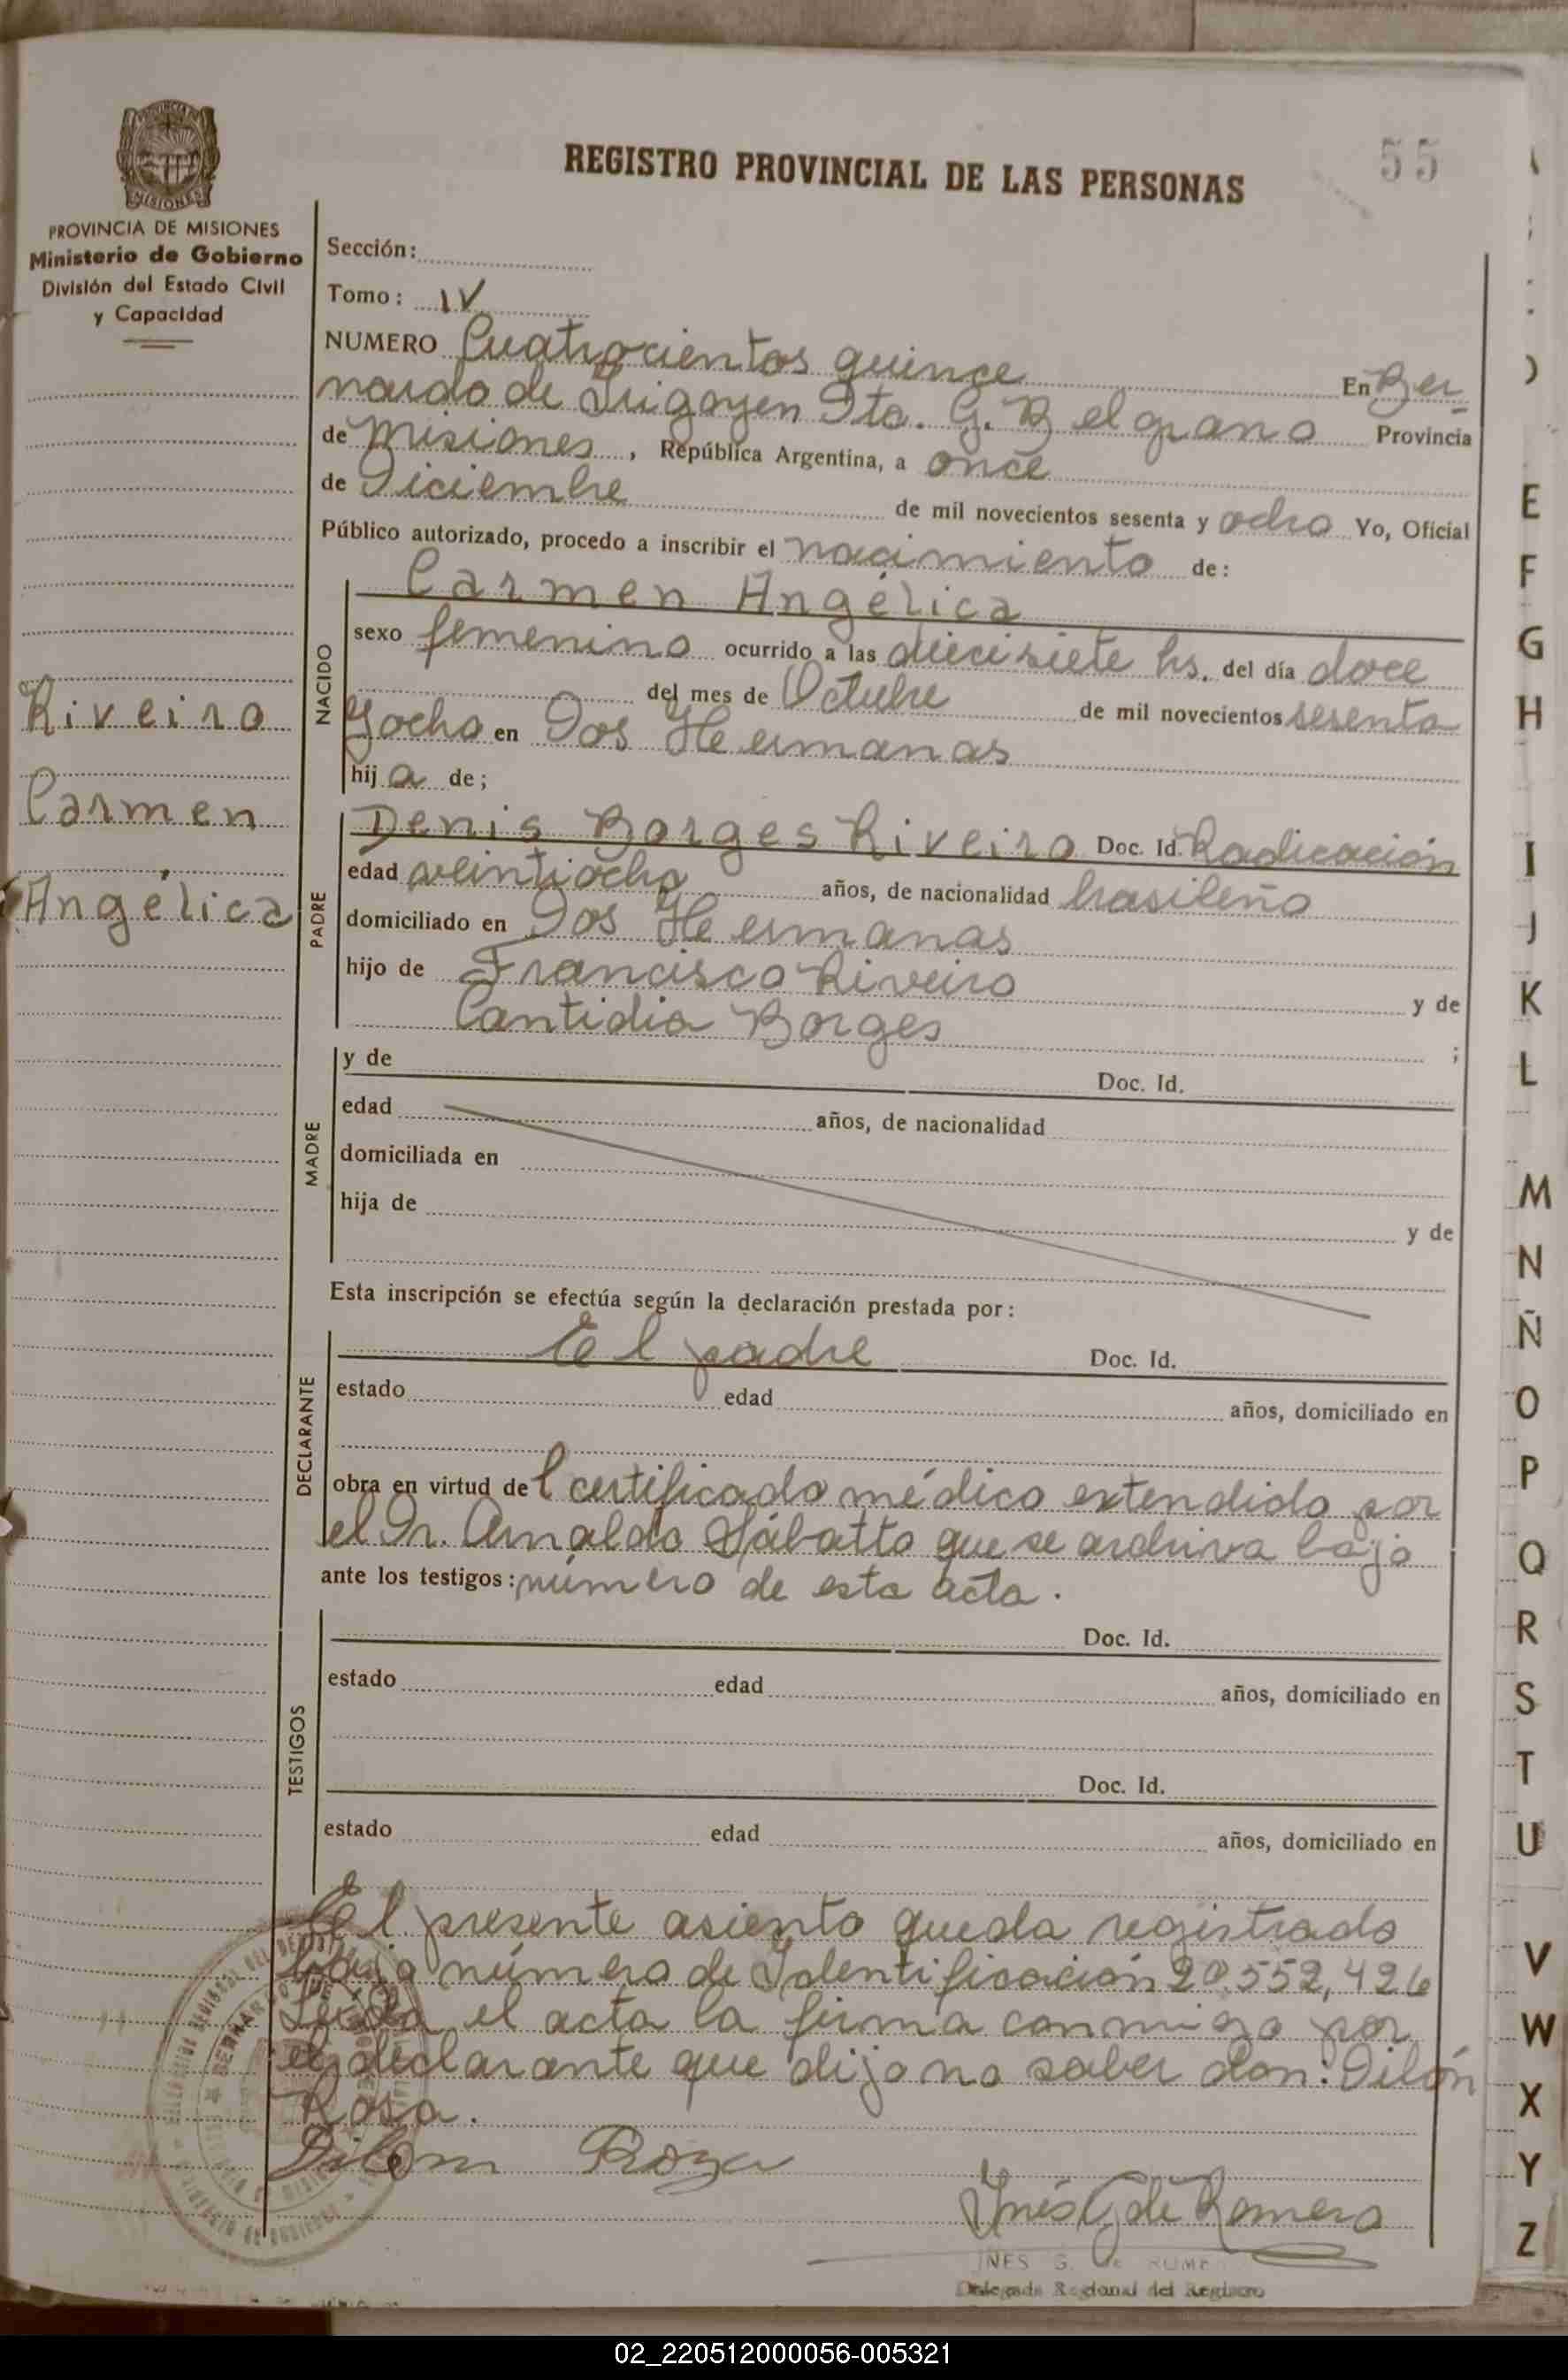 REGISTRO PROVINCIAL DE LAS PERSONAS
55
MISIONES
PROVINCIA DE MISIONES
Ministerio de Gobierno
División del Estado Civil
y Capacidad
Riveiro
Carmen
Angélica
Sección:
Tomo: IV
NUMERO Cuatrocientos quince En Ber-
nardo de Irigoyen Dto. G. Belgrano Provincia
de Misiones, República Argentina, a once
de Diciembre de mil novecientos sesenta y ocho Yo, Oficial
Público autorizado, procedo a inscribir el nacimiento de:
NACIDO
Carmen Angélica
sexo femenino ocurrido a las diecisiete hs. del día doce
del mes de Octubre de mil novecientos sesenta
y ocho en Dos Hermanas
hija de;
PADRE
Denis Borges Riveiro Doc. Id. Radicación
edad veintiocho años, de nacionalidad brasileña
domiciliado en Dos Hermanas
hijo de Francisco Riveiro y de
Cantidia Borges ;
MADRE
y de Doc. Id.
edad años, de nacionalidad
domiciliada en
hija de y de
Esta inscripción se efectúa según la declaración prestada por:
DECLARANTE
El padre Doc. Id.
estado edad años, domiciliado en
obra en virtud del certificado médico extendido por
el Dr. Arnaldo Sábatto que se archiva bajo
ante los testigos: número de esta acta.
TESTIGOS
Doc. Id.
estado edad años, domiciliado en
Doc. Id.
estado edad años, domiciliado en
El presente asiento queda registrado
bajo número de Identificación 20.552,426
Leída el acta la firma conmigo por
el declarante que dijo no saber don: Dilón
Rosa.
Dilom Roza
Inés G de Romero
INES G. de ROME
Delegada Regional del Registro
E
F
G
H
I
J
K
L
M
N
Ñ
O
P
Q
R
S
T
U
V
W
X
Y
Z
02_220512000056-005321